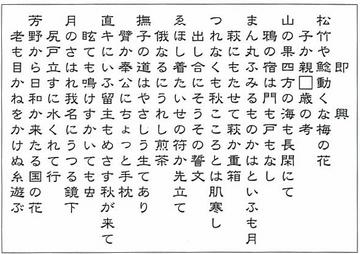 即興
松竹や鯰動くな梅の花
子か親□歳の考
山の果四方の海も長閑にて
鴉の宿は門も戸もなし
まん丸ふみるものかはといふも月
萩にもたせて萩か重箱
つれなくも秋こころとは肌寒し
出し合にそうその誓文
ゑほし着たいせの符か先立て
俄なるにうれし煎茶
撫子の道はやさしう生てあり
臂か奉公にちょっと手枕
直キにいふ留主もめさす秋が来て
眩ても鳴けすかいても虫
月のさはれ我名にうつる鏡下
尻戸立すに水くれて行
芳野から日和か来たる国の花
老も目かねをかけぬ糸遊ぶ